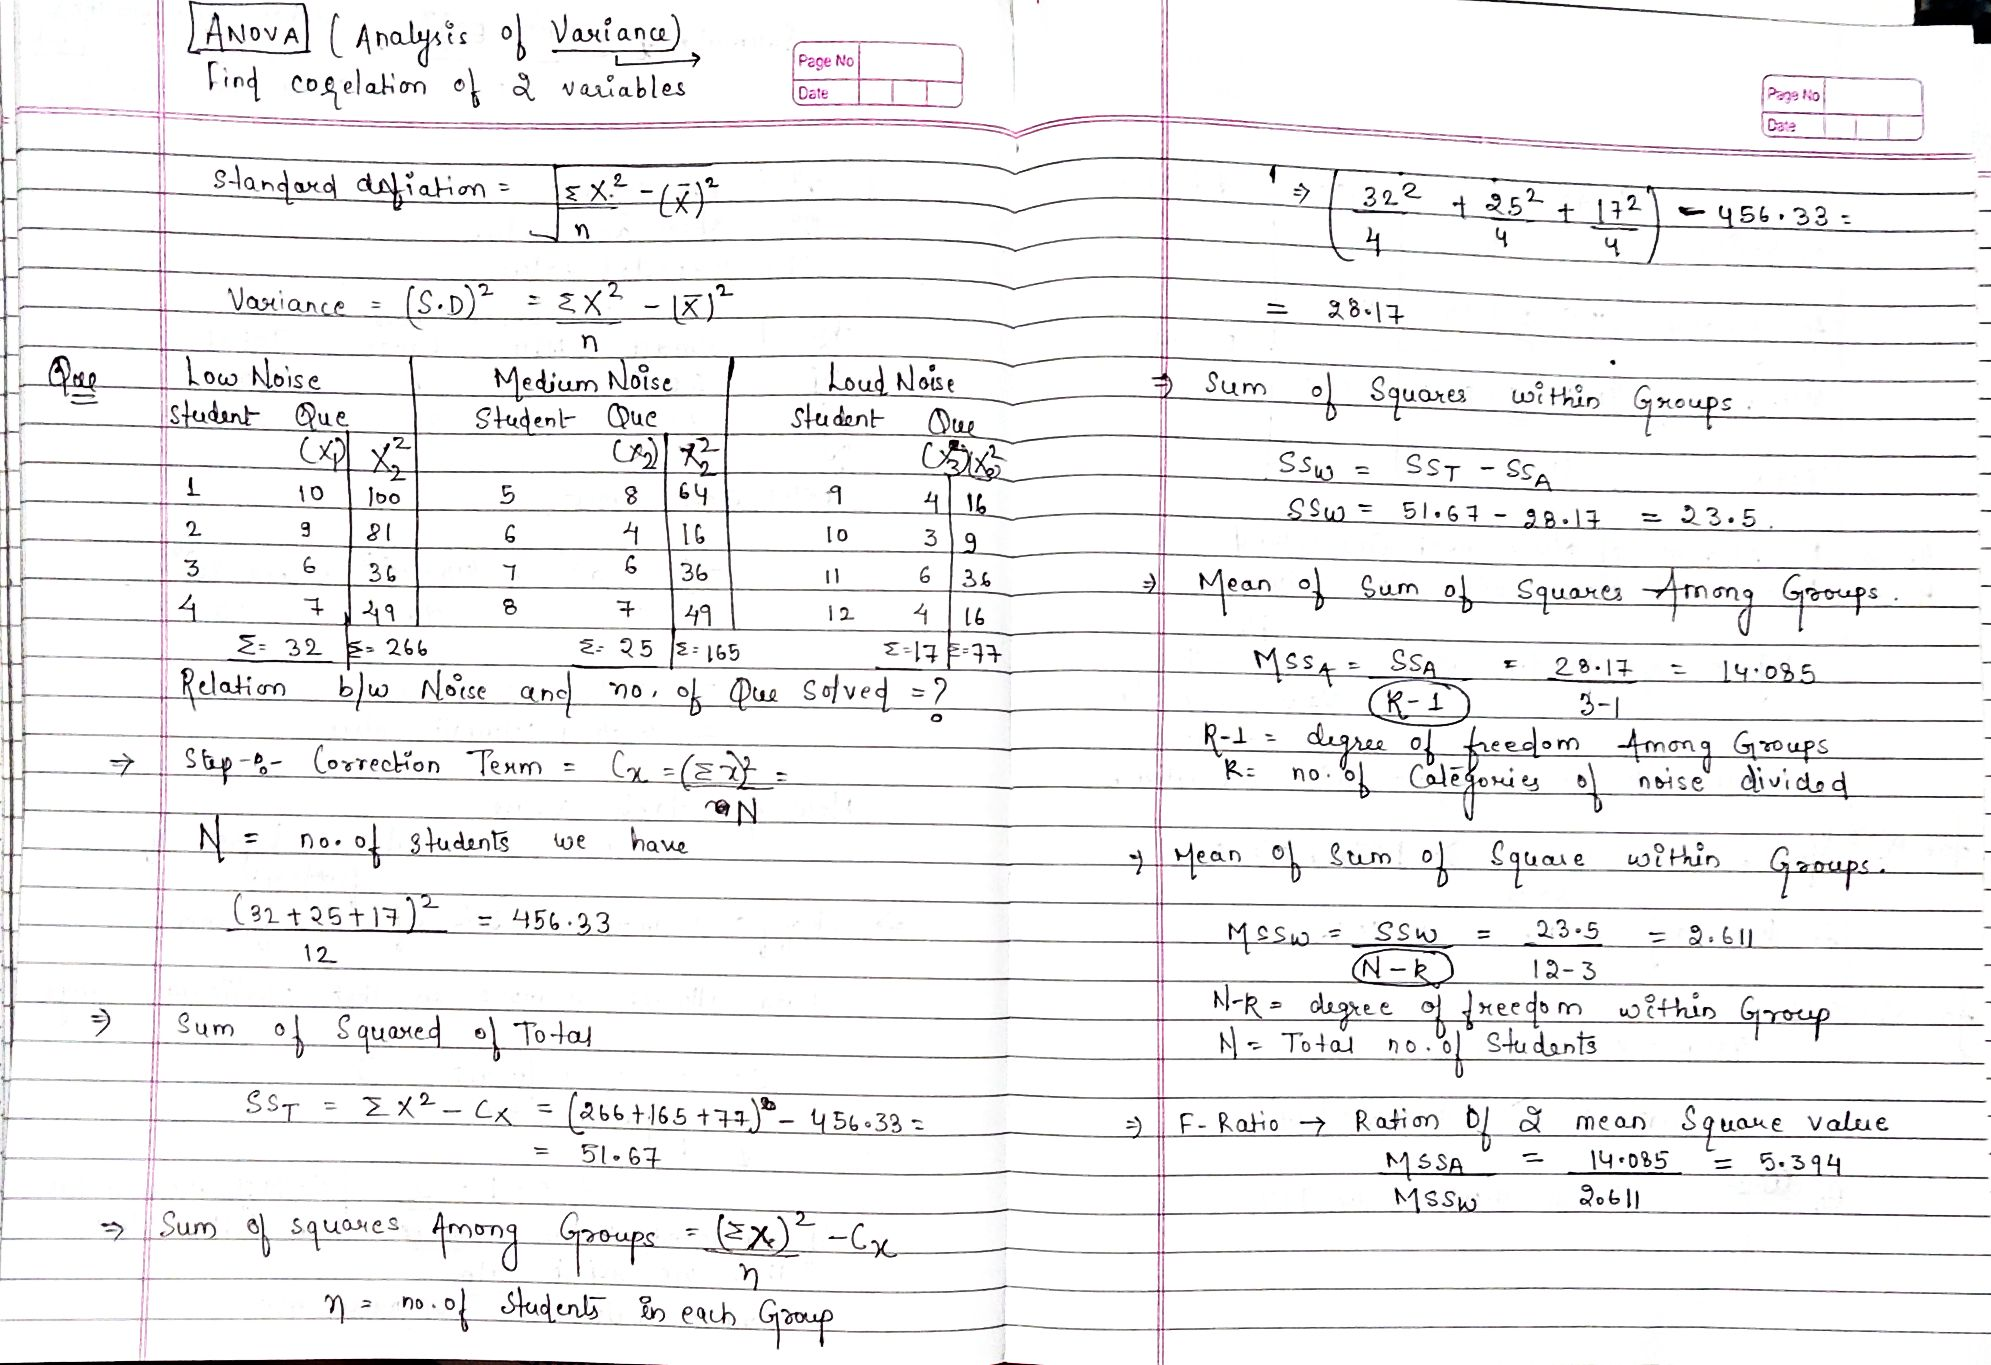 ANOVA (Analysis of Variance)
Find corelation of 2 variables
Page No
Date
Standard defiation = √ΣX²/n - (x̄)²
Variance = (S.D)² = ΣX²/n - (x̄)²
Que
Low Noise | Medium Noise | Loud Noise
Student Que | Student Que | Student Que
(X₁) | X₂² | (X₂) | X₂² | (X₃) | X₂²
1 10 | 100 | 5 8 | 64 | 9 4 | 16
2 9 | 81 | 6 4 | 16 | 10 3 | 9
3 6 | 36 | 7 6 | 36 | 11 6 | 36
4 7 | 49 | 8 7 | 49 | 12 4 | 16
Σ= 32 | Σ= 266 Σ= 25 | Σ= 165 Σ=17 | Σ=77
Relation b/w Noise and no. of Que Solved = ?
⇒ Step-:- Correction Term = Cx = (Σx)²/N =
N = no. of students we have
(32+25+17)²/12 = 456.33
⇒ Sum of Squared of Total
SST = ΣX² - Cx = (266+165+77) - 456.33 =
= 51.67
⇒ Sum of squares Among Groups = (Σx)²/n - Cx
n = no. of Students in each Group
Page No
Date
⇒ (32²/4 + 25²/4 + 17²/4) - 456.33 =
= 28.17
⇒ Sum of Squares within Groups.
SSW = SST - SSA
SSW = 51.67 - 28.17 = 23.5.
⇒ Mean of Sum of Squares Among Groups.
MSSA = SSA/(K-1) = 28.17/3-1 = 14.085
K-1 = degree of freedom Among Groups
K= no. of Categories of noise divided
⇒ Mean of Sum of Square within Groups.
MSSW = SSW/(N-k) = 23.5/12-3 = 2.611
N-K = degree of freedom within Group
N = Total no. of Students
⇒ F-Ratio → Ration Of 2 mean Square value
MSSA/MSSW = 14.085/2.611 = 5.394